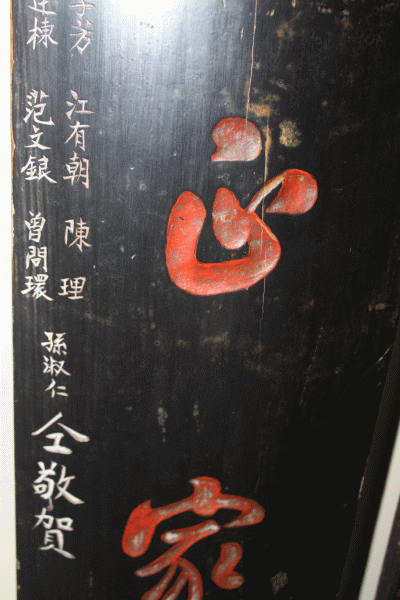 家
芳 江有朝 陳理
棟 范文銀 曾問環
孫淑仁
仝敬賀